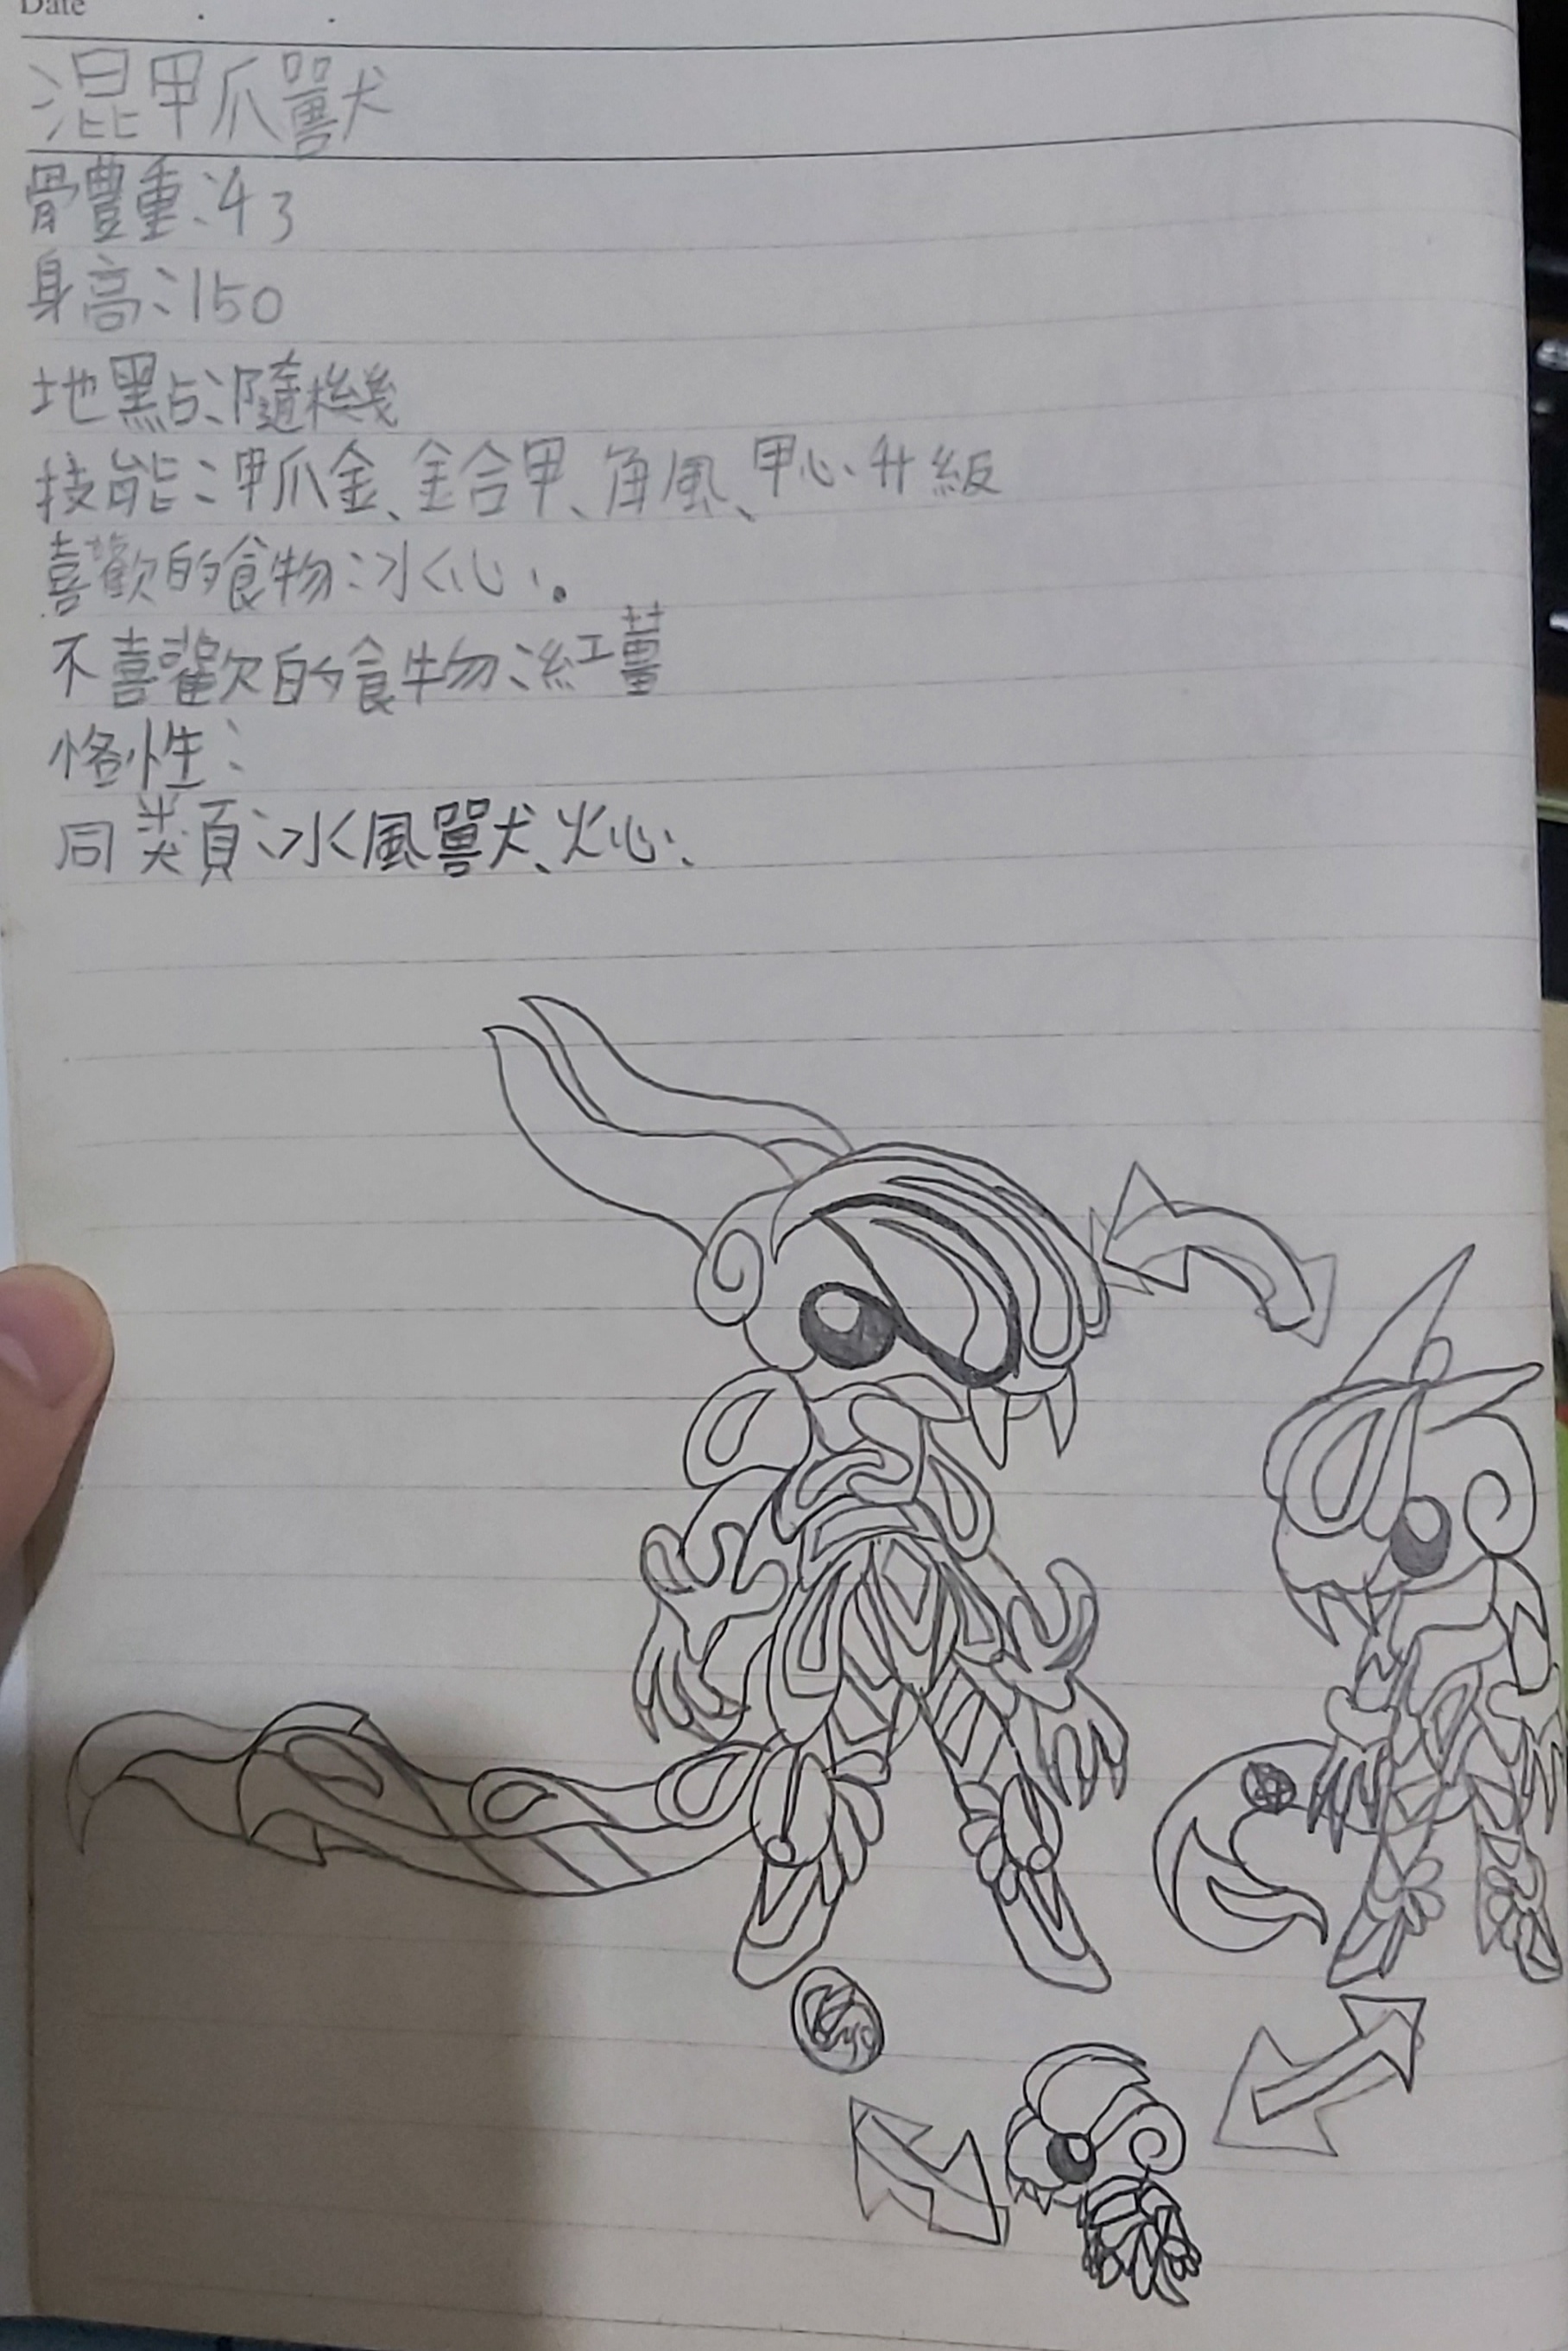 Date
混甲爪獸
骨豊重:43
身高:150
地點:隨機
技能:甲爪金、金合甲、角風、甲心升級
喜歡的食物:冰心。
不喜歡的食物:紅薑
恪性:
同類:冰風獸、火心、